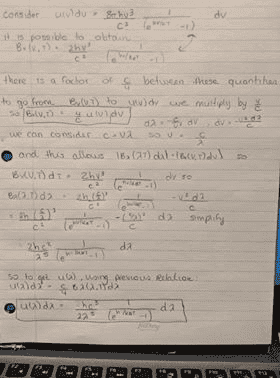 consider u(ν)dν = 8πhν³/c³ 1/(e^(hν/kBT) -1) dν
it is possible to obtain
Bν(ν,T) = 2hν³/c² 1/(e^(hν/kBT) -1)
there is a factor of c/4 between these quantities
to go from Bν(ν,T) to u(ν)dν we multiply by 4/c
so Bν(ν,T) = u(ν)dν
we can consider c = νλ so ν = c/λ
and this allows |Bλ(λT)dλ| = |Bν(ν,T)dν| so
Bν(ν,T)dτ = 2hν³/c² 1/(e^(hν/kBT) -1) dν so
Bλ(λ,T)dλ = 2h(c/λ)³/c² 1/(e^(hν/kBT) -1) -ν²dλ/c
= 2h(c/λ)³/c² 1/(e^(hν/kBT) -1) -(c/λ)²/c dλ simplify
= 2hc²/λ⁵ 1/(e^(hν/kBT) -1) dλ
so to get u(λ), using previous relation:
u(λ)dλ = c/4 Bλ(λ,T)dλ
u(λ)dλ = hc³/2λ⁵ 1/(e^(hν/kBT) -1) dλ